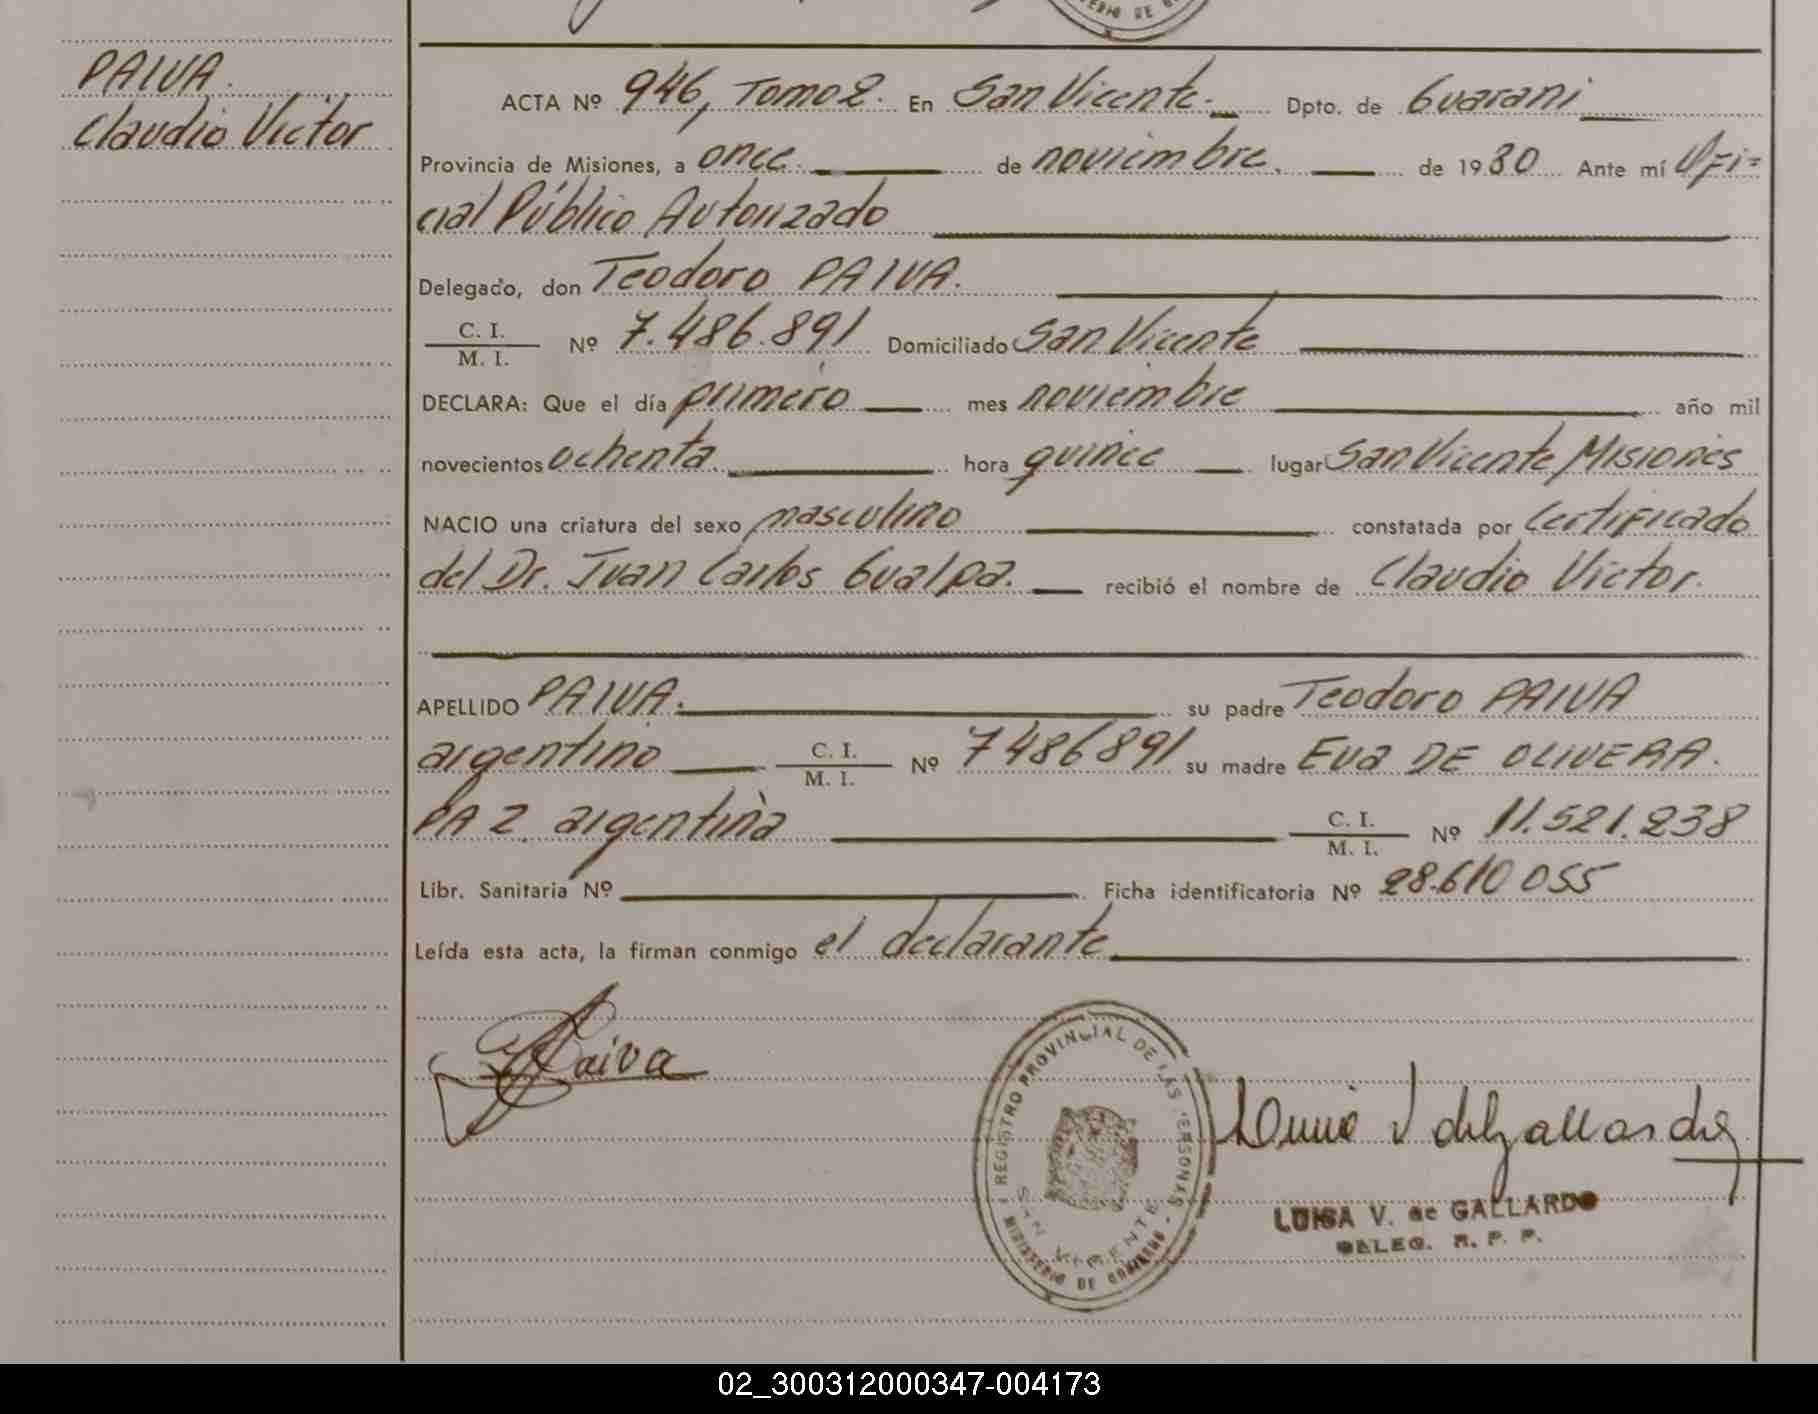 PAIVA.
Claudio Victor
ACTA Nº 946, Tomo 2. En San Vicente. Dpto. de Guarani
Provincia de Misiones, a once. de noviembre. de 1980 Ante mí Ofi=
cial Público Autorizado
Delegado, don Teodoro PAIVA.
C. I.
M. I. Nº 7.486.891 Domiciliado San Vicente
DECLARA: Que el día primero mes noviembre año mil
novecientos ochenta. hora quince lugar San Vicente, Misiones
NACIO una criatura del sexo masculino constatada por Certificado
del Dr. Juan Carlos Gualpa. recibió el nombre de Claudio Victor.
APELLIDO PAIVA. su padre Teodoro PAIVA
argentino C. I.
M. I. Nº 7486891 su madre Eva DE OLIVERA.
PAZ. argentina C. I.
M. I. Nº 11.521.238
Libr. Sanitaria Nº Ficha identificatoria Nº 28.610 055
Leída esta acta, la firman conmigo el declarante.
Paiva
REGISTRO PROVINCIAL DE LAS PERSONAS
SAN VICENTE
MINISTERIO DE GOBIERNO
LUISA V. de GALLARDO
DELEG. R. P. P.
02_300312000347-004173